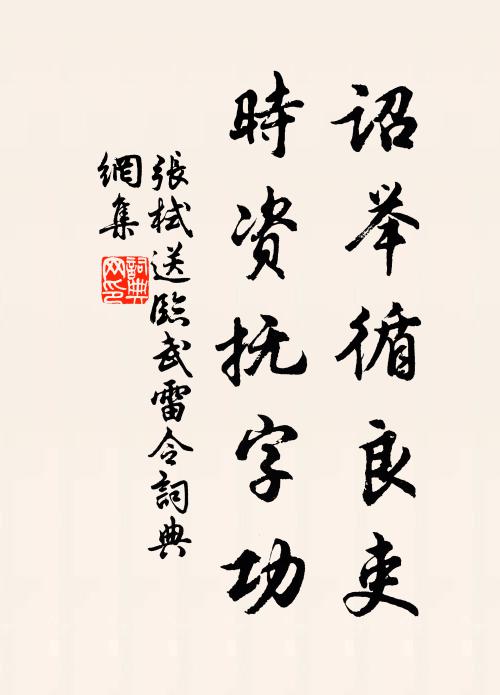 诏举循良吏
時资抚字功
張栻送臨武雷令詞典
網集
詞典
网印